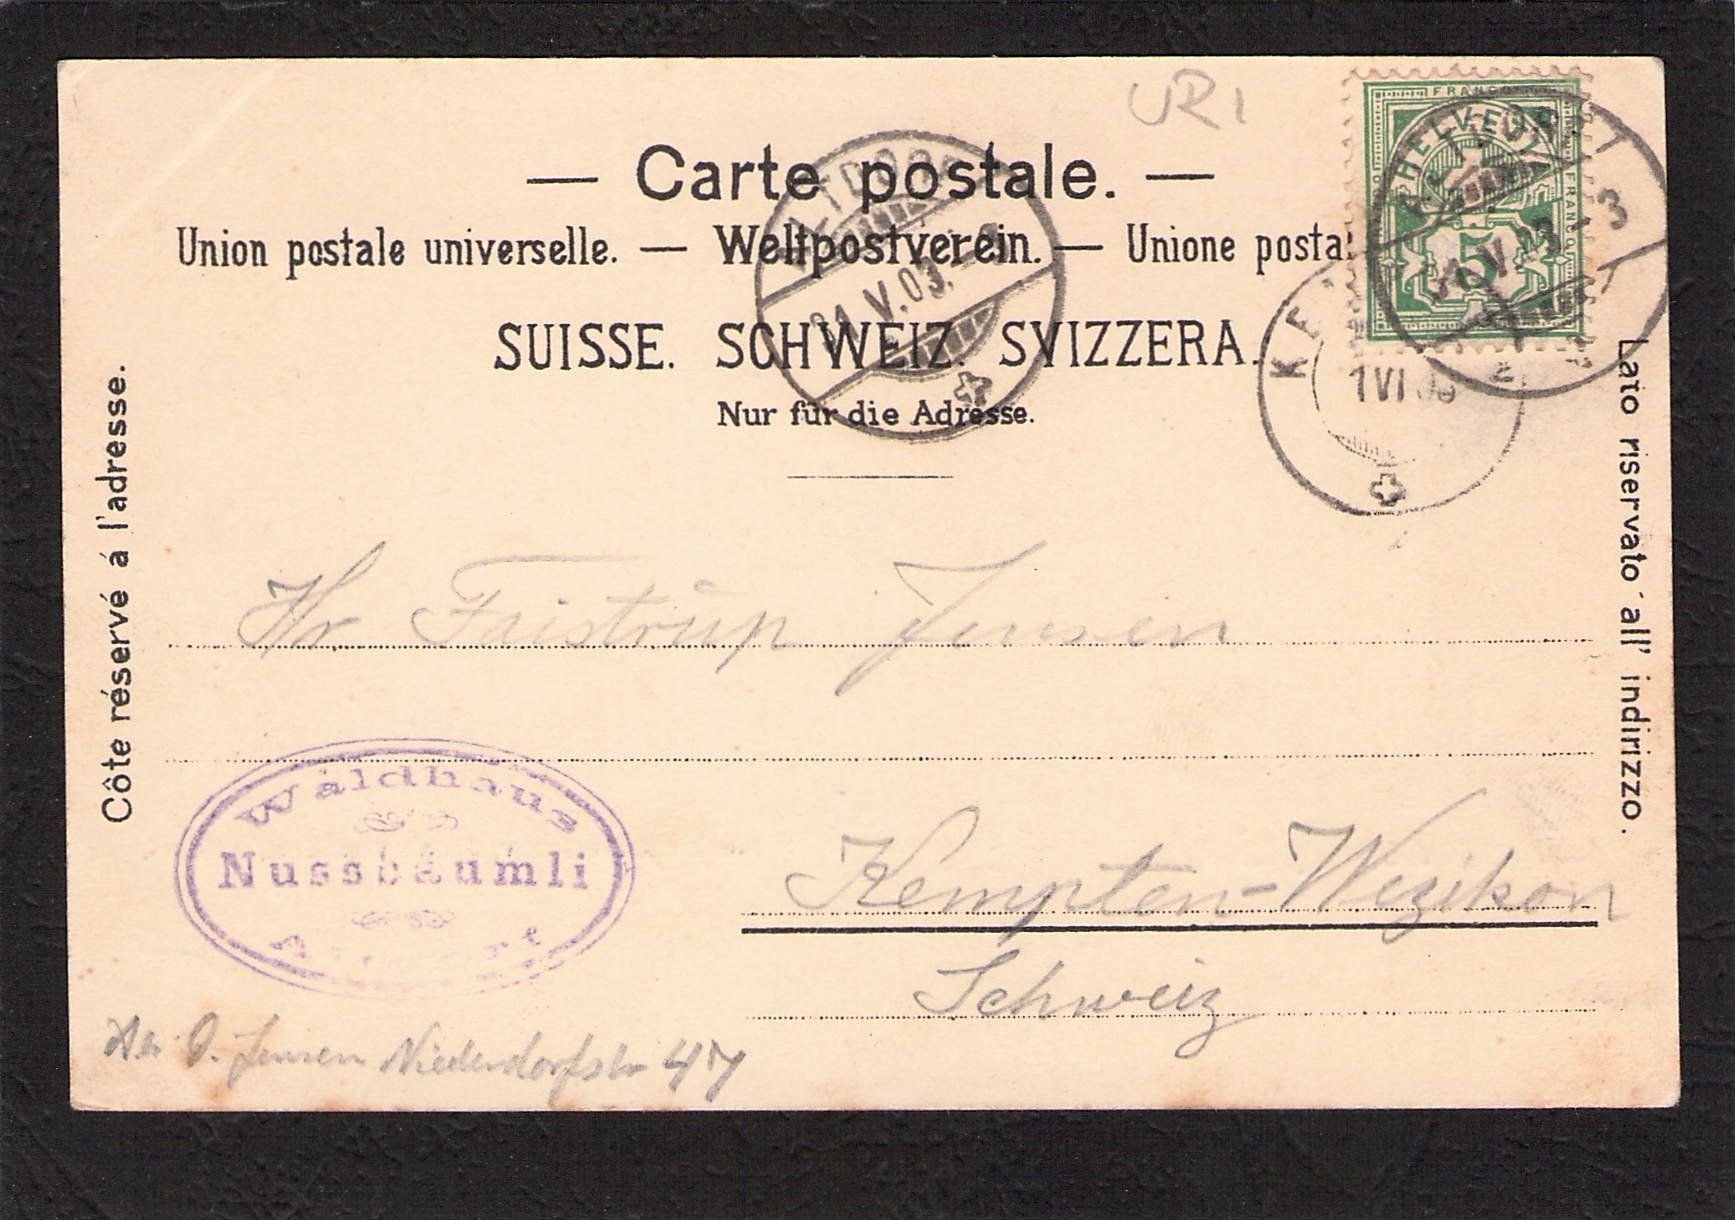 URI
— Carte postale. —
Union postale universelle. — Weltpostverein. — Unione postal
SUISSE. SCHWEIZ. SVIZZERA.
Nur für die Adresse.
Côte réservé á l'adresse.
Lato riservato all' indirizzo.
FRANCO
HELVETIA
FRANCO
5
ALTDORF
31 V.03.
1 VI 03
Hr Faistrup Jensen
Kempten-Wezikon
Schweiz
Waldhaus
Nussbäumli
J. Jensen Niederdorfstr 47